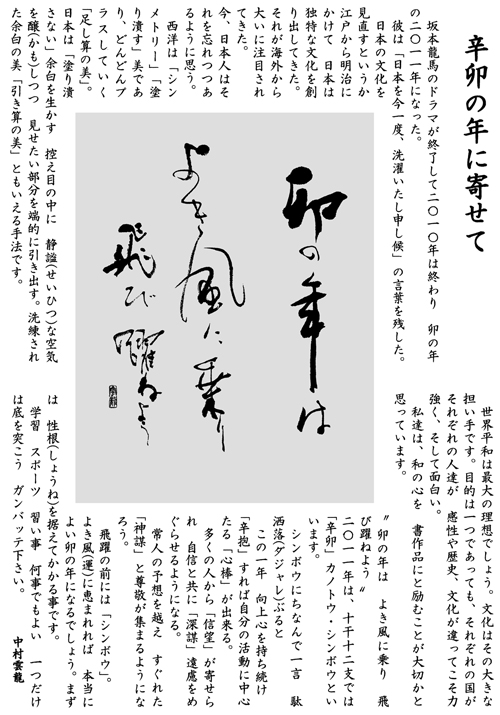 辛卯の年に寄せて
坂本龍馬のドラマが終了して二〇一〇年は終わり 卯の年
の二〇一一年になった。
彼は「日本を今一度、洗濯いたし申し候」の言葉を残した。
日本の文化を
見直すというか
江戸から明治に
かけて 日本は
独特な文化を創
り出してきた。
それが海外から
大いに注目され
てきた。
今、日本人はそ
れを忘れつつあ
るように思う。
西洋は「シン
メトリー」「塗
り潰す」美であ
り、どんどんプ
ラスしていく
「足し算の美」。
日本は「塗り潰
さない」余白を生かす 控え目の中に 静謐(せいひつ)な空気
を醸(かも)しつつ 見せたい部分を端的に引き出す。洗練され
た余白の美「引き算の美」ともいえる手法です。
卯の年は
よき風に乗り
飛び躍ねよう
世界平和は最大の理想でしょう。文化はその大きな
担い手です。目的は一つであっても、それぞれの国が
それぞれの人達が 感性や歴史、文化が違ってこそ力
強く、そして面白い。
私達は、和の心を 書作品にと励むことが大切かと
思っています。
〝卯の年は よき風に乗り 飛
び躍ねよう〟
二〇一一年は、十干十二支では
「辛卯」カノトウ・シンボウとい
います。
シンボウにちなんで一言 駄
洒落(ダジャレ)ぶると
この一年 向上心を持ち続け
「辛抱」すれば自分の活動に中心
たる「心棒」が出来る。
多くの人から「信望」が寄せら
れ 自信と共に「深謀」遠慮をめ
ぐらせるようになる。
常人の予想を越え すぐれた
「神謀」と尊敬が集まるようにな
ろう。
飛躍の前には「シンボウ」。
よき風(運)に恵まれれば 本当に
よい卯の年になるでしょう。まず
は 性根(しょうね)を据えてかかる事です。
学習 スポーツ 習い事 何事でもよい 一つだけ
は底を突こう ガンバッテ下さい。
中村雲龍